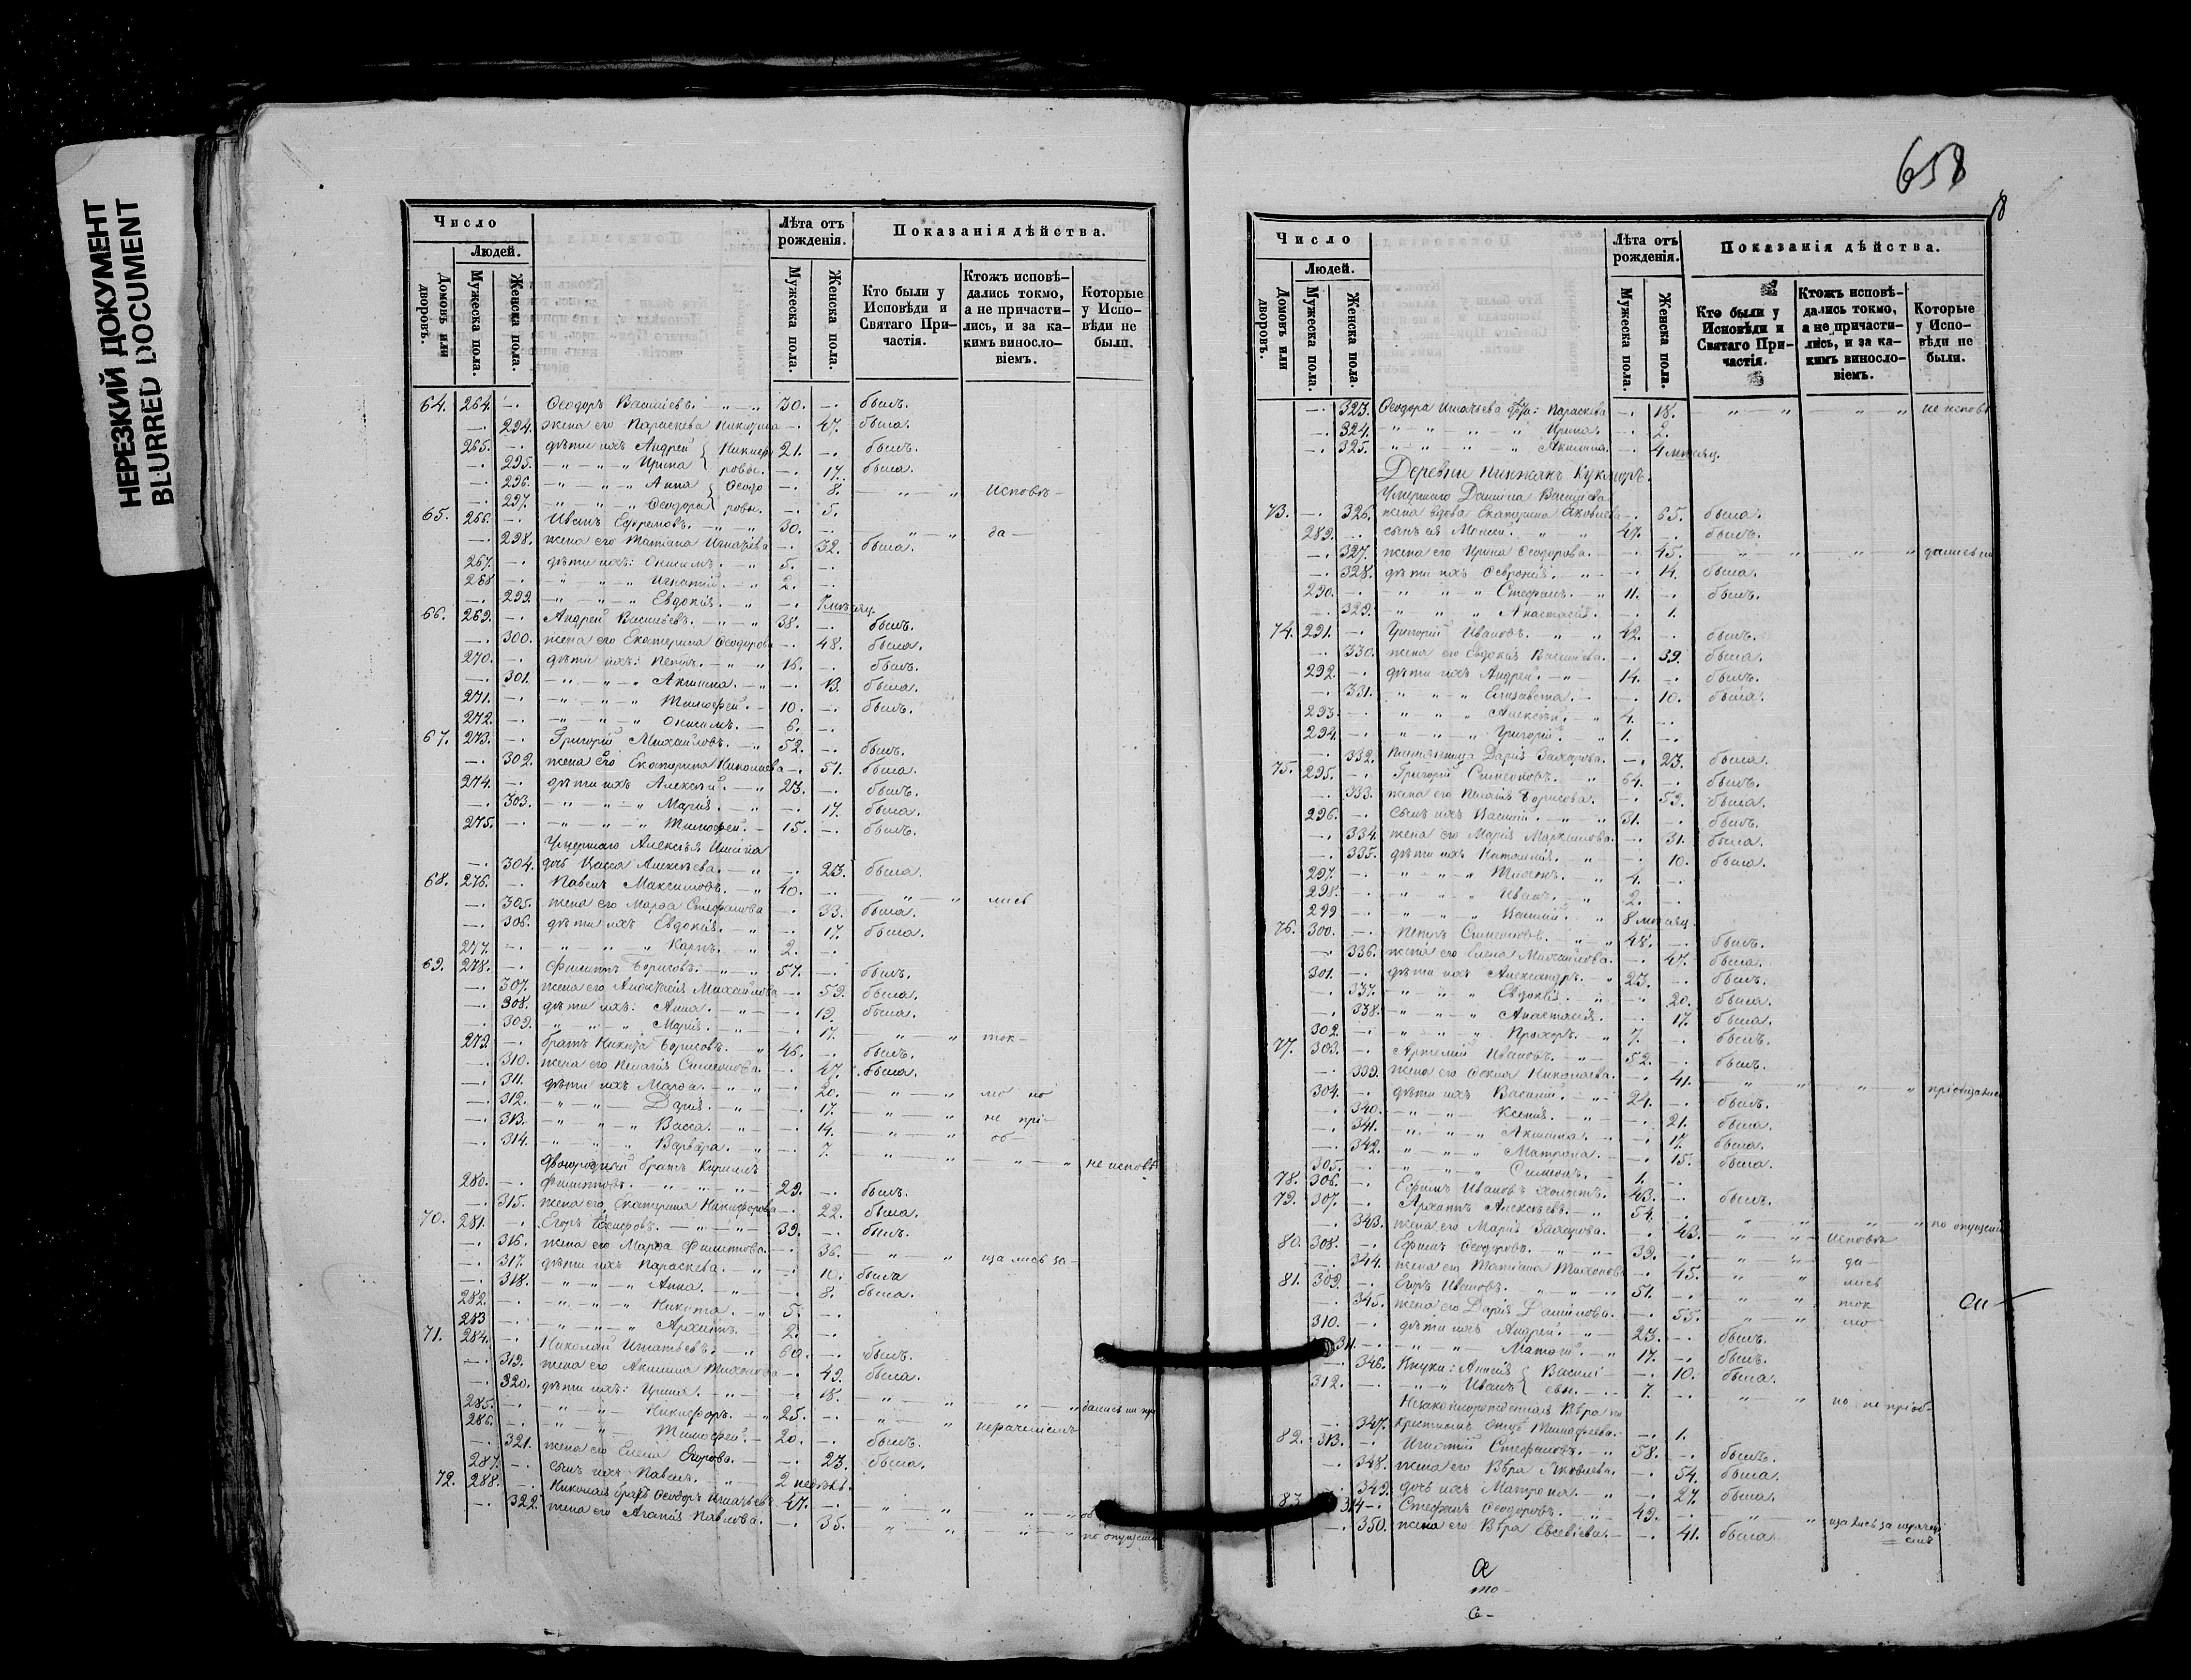 НЕРЕЗКИЙ ДОКУМЕНТ
BLURRED DOCUMENT
Число
Людей.
Домовъ или дворовъ.
Мужеска пола.
Женска пола.
Лѣта отъ рожденія.
Мужеска пола.
Женска пола.
Показанія дѣйства.
Кто были у Исповѣди и Святаго При-частія.
Ктожъ исповѣ-дались токмо, а не причасти-лись, и за ка-кимъ винослo-віемъ.
Которые у Испо-вѣди не были.
64. 264. —. Ѳеодоръ Васильевъ. — „ — „ 30. —. былъ.
—. 294. жена его Параскева Никитина —. 47. была.
265. —. дѣти ихъ Андрей Никифо 21. —. былъ.
—. 295. — „ — „ Ирина ровы. —. 17. была.
—. 296. — „ — „ Анна Ѳеодо —. 8. — „ — „ Исповѣ-
—. 297. „ „ „ Ѳеодора ровы. —. 5.
65. 266. —. Иванъ Ефремовъ. — „ „ 30. —. „ — „ да-
—. 298. жена его Татіана Игнатьева —. 32. была.
267. —. дѣти ихъ: Онисимъ. — „ 5. —.
268 —. „ „ „ Игнатій. — „ 2. —.
—. 299. — „ — „ Евдокія. — „ —. мѣсяц.
66. 269. —. Андрей Васильевъ. — „ — „ 38. —. былъ.
—. 300. жена его Екатерина Ѳеодорова —. 48. была.
270. —. дѣти ихъ: Петръ. — „ — „ 16. —. былъ.
—. 301. — „ — „ Акилина. — „ —. 13. была.
271. —. — „ — „ Тимоѳей. — 10. —. былъ.
272. —. — „ — „ Онисимъ. — 6. —.
67. 273. —. Григорій Михайловъ. — „ 52. —. былъ.
—. 302. жена его Екатерина Николаева —. 51. была.
274. —. дѣти ихъ Алексѣй. — „ 23. —. былъ.
—. 303. — „ — „ Марія. — „ —. 17. была.
275. —. — „ — „ Тимоѳей. — 15. —. былъ.
Умершаго Алексѣя
—. 304. дочь Васса Алексѣева. — „ —. 23. была.
68. 276. —. Павелъ Максимовъ. — „ 40. —. „ — „ лись
—. 305. жена его Марѳа Стефанова —. 33. была.
—. 306. дѣти ихъ Евдокія. — „ —. 17. была.
277. —. — „ „ „ Карпъ. — „ 2. —.
69. 278. —. Филиппъ Борисовъ. — „ — „ 57. —. былъ.
—. 307. жена его Анастасія Михайлова —. 59. была.
—. 308. дѣти ихъ: Анна. — „ — —. 19. была.
—. 309. „ „ „ Марія. — „ —. 17. „ — „ ток-
279. —. братъ Никита Борисовъ. „ 46. —. былъ.
—. 310. жена его Пелагія Симеонова. —. 47. была.
—. 311. дѣти ихъ Марѳа. — „ — „ —. 20. — „ — „ мо но
—. 312. — „ — „ Дарія. — „ —. 17. „ — „ не прі-
—. 313. — „ — „ Васса. — „ —. 14. — „ — „ об-
—. 314. — „ „ „ Варвара. — „ —. 7. „ „ — „ — „ не исповѣ
двоюродный братъ Кириллъ
280. —. Филипповъ. — „ — „ 29. —. былъ.
—. 315. жена его Екатерина Никифорова —. 22. была.
70. 281. —. Егоръ Іосифовъ. — „ — „ 39. —. былъ.
—. 316. жена его Марѳа Филиппова. —. 36. — „ — „ ща лись за-
—. 317. дѣти ихъ Параскева. — „ —. 10. была
—. 318. — „ — „ Анна. — „ —. 8. была.
282. —. — „ — „ Никита. — „ 5. —.
283 —. — „ — „ Архипъ. — 2. —.
71. 284. —. Николай Игнатьевъ. — „ 60. —. былъ.
—. 319. жена его Акилина Тихонова —. 49. была.
—. 320. дѣти ихъ: Ирина. — „ —. 18. „ „ „ — „
285. —. „ „ „ Никифоръ. — „ 25. —. „ „ „ — „ дались ни при
286. —. „ „ „ Тимоѳей. — 20. —. былъ. нераченіемъ
—. 321. жена его Елена Егорова. —. 23. была.
287. —. сынъ ихъ Павелъ. „ 2 недѣль.
72. 288. —. Николая братъ Ѳеодоръ Игнатьевъ 47. —. „ „ „ — „ об
—. 322. жена его Агапія Павлова. —. 35. „ „ „ — „ по опущен
658
8
Число
Людей.
Домовъ или дворовъ.
Мужеска пола.
Женска пола.
Лѣта отъ рожденія.
Мужеска пола.
Женска пола.
Показанія дѣйства.
Кто были у Исповѣди и Святаго При-частія.
Ктожъ исповѣ-дались токмо, а не причасти-лись, и за ка-кимъ винослo-віемъ.
Которые у Испо-вѣди не были.
—. 323. Ѳеодора Игнатьева Параскева —. 18. „ — „ — „ „ не исповѣ
—. 324. — „ — „ „ Ирина. —. 2.
—. 325. „ „ „ „ Акилина. —. 4 мѣсяц.
Деревни Пинжанъ Кукморъ.
Умершаго Даніила Васильева
73. —. 326. жена вдова Екатерина Яковлева —. 65. была.
289. —. сынъ ея Моисей. „ „ 47. —. былъ.
—. 327. жена его Ирина Ѳеодорова. —. 45. „ „ „ „ дались ни
—. 328. дѣти ихъ Февронія. — „ —. 14. была.
290. —. „ „ „ Стефанъ. — „ 11. —. былъ.
—. 329. „ „ „ Анастасія. —. 1.
74. 291. —. Григорій Ивановъ. — „ „ 42. —. былъ.
—. 330. жена его Евдокія Васильева. —. 39. была.
292. —. дѣти ихъ Андрей. — „ 14. —. былъ.
—. 331. „ „ „ Елизавета. — —. 10. была.
293. —. „ „ „ Алексѣй. — „ 4. —.
294. —. „ „ „ Григорій. „ 1. —.
—. 332. Дарія Захарова. —. 23. была.
75. 295. —. Григорій Симеоновъ. — „ 64. —. былъ.
—. 333. жена его Пелагія Борисова. —. 59. была.
296. —. сынъ ихъ Василій. — „ „ 31. —. былъ.
—. 334. жена его Марія Максимова. —. 31. была.
—. 335. дѣти ихъ Наталія. „ —. 10. была.
297. —. „ „ „ Тихонъ. — „ 4. —.
298. —. „ „ „ Иванъ. — „ 2. —.
299 —. „ „ „ Василій. „ 8 мѣсяц.
76. 300. —. Петръ Симеоновъ. — „ „ 48. —. былъ.
—. 336. жена его Елена Михайлова. —. 47. была.
301. —. дѣти ихъ Александръ. „ 23. —. былъ.
—. 337. „ „ „ Евдокія. „ —. 20. была.
—. 338. „ „ „ Анастасія. —. 17. была.
302. —. „ „ „ Прохоръ. — „ 7. —. былъ.
77. 303. —. Артемій Ивановъ. — „ 52. —. былъ.
—. 339. жена его Ѳекла Николаева. —. 41. „ „ „ — „ пріобщались
304. —. дѣти ихъ Василій. — „ 24. —. былъ.
—. 340. — „ „ Ксенія. — „ —. 21. была.
—. 341. „ „ „ Акилина. —. 17. была.
—. 342. „ „ „ Матрона. —. 15. была.
305. —. „ „ „ Симеонъ. — 1. —.
78. 306. —. Ефимъ Ивановъ холостъ. 43. —. былъ.
79. 307. —. Архипъ Алексѣевъ. — „ 54. —. „ „ „ „ по опущен
—. 343. жена его Марія Захарова. —. 43. — „ „ Исповѣ
80. 308. —. Ефимъ Ѳеодоровъ. — „ „ 39. —. „ „ да-
—. 344. жена его Татіана Тихонова —. 45. „ „ лись
81. 309. —. Егоръ Ивановъ. „ „ 51. —. „ „ ток
—. 345. жена его Дарія Даніилова. —. 55. „ „ мо
310. —. дѣти ихъ Андрей. „ 23. —. былъ.
311. —. „ „ Матѳей. — „ 17. —. былъ.
—. 346. Внуки: Анисія Василь- —. 10. была.
312. —. „ „ Иванъ евы. — 7. —. „ „ но не пріоб-
Незаконорожденная Вѣра по
—. 347. крестномъ отцѣ Тимоѳеева. —. 1.
82. 313. —. Игнатій Стефановъ. — „ 58. —. былъ.
—. 348. жена его Вѣра Яковлева. —. 54. была.
—. 349. дочь ихъ Матрона. — „ —. 27. была.
83. 314 —. Стефанъ Ѳеодоровъ. „ 49. —. „ „ щались за нерачен
—. 350. жена его Вѣра Евсевіева. —. 41. была. емъ
то